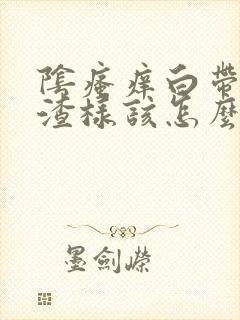 陰瘙痒白帶
渣樣該怎麼
墨劍嶸